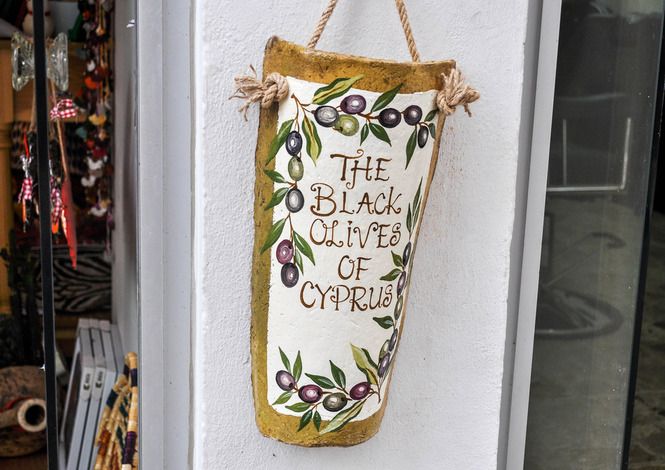 THE
BLACK
OLIVES
OF
CYPRUS